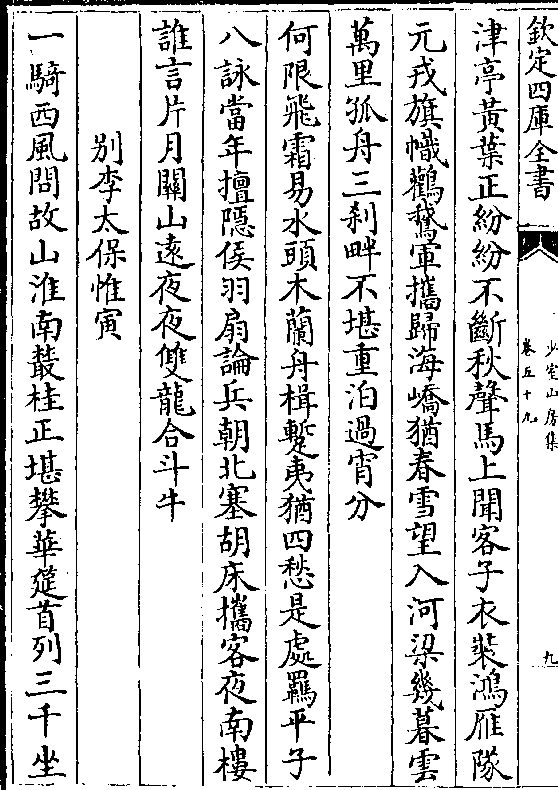 欽定四庫全書
少室山房集
卷五十九
九
津亭黃葉正紛紛不斷秋聲馬上聞客子衣裝鴻雁隊
元戎旗幟鸛鵞軍攜歸海嶠猶春雪望入河梁幾暮雲
萬里孤舟三刹畔不堪重泊過宵分
何限飛霜易水頭木蘭舟楫蹔夷猶四愁是處羈平子
八詠當年擅隱侯羽扇論兵朝北塞胡床攜客夜南樓
誰言片月關山遠夜夜雙龍合斗牛
別李太保惟寅
一騎西風問故山淮南叢桂正堪攀華筵首列三千坐